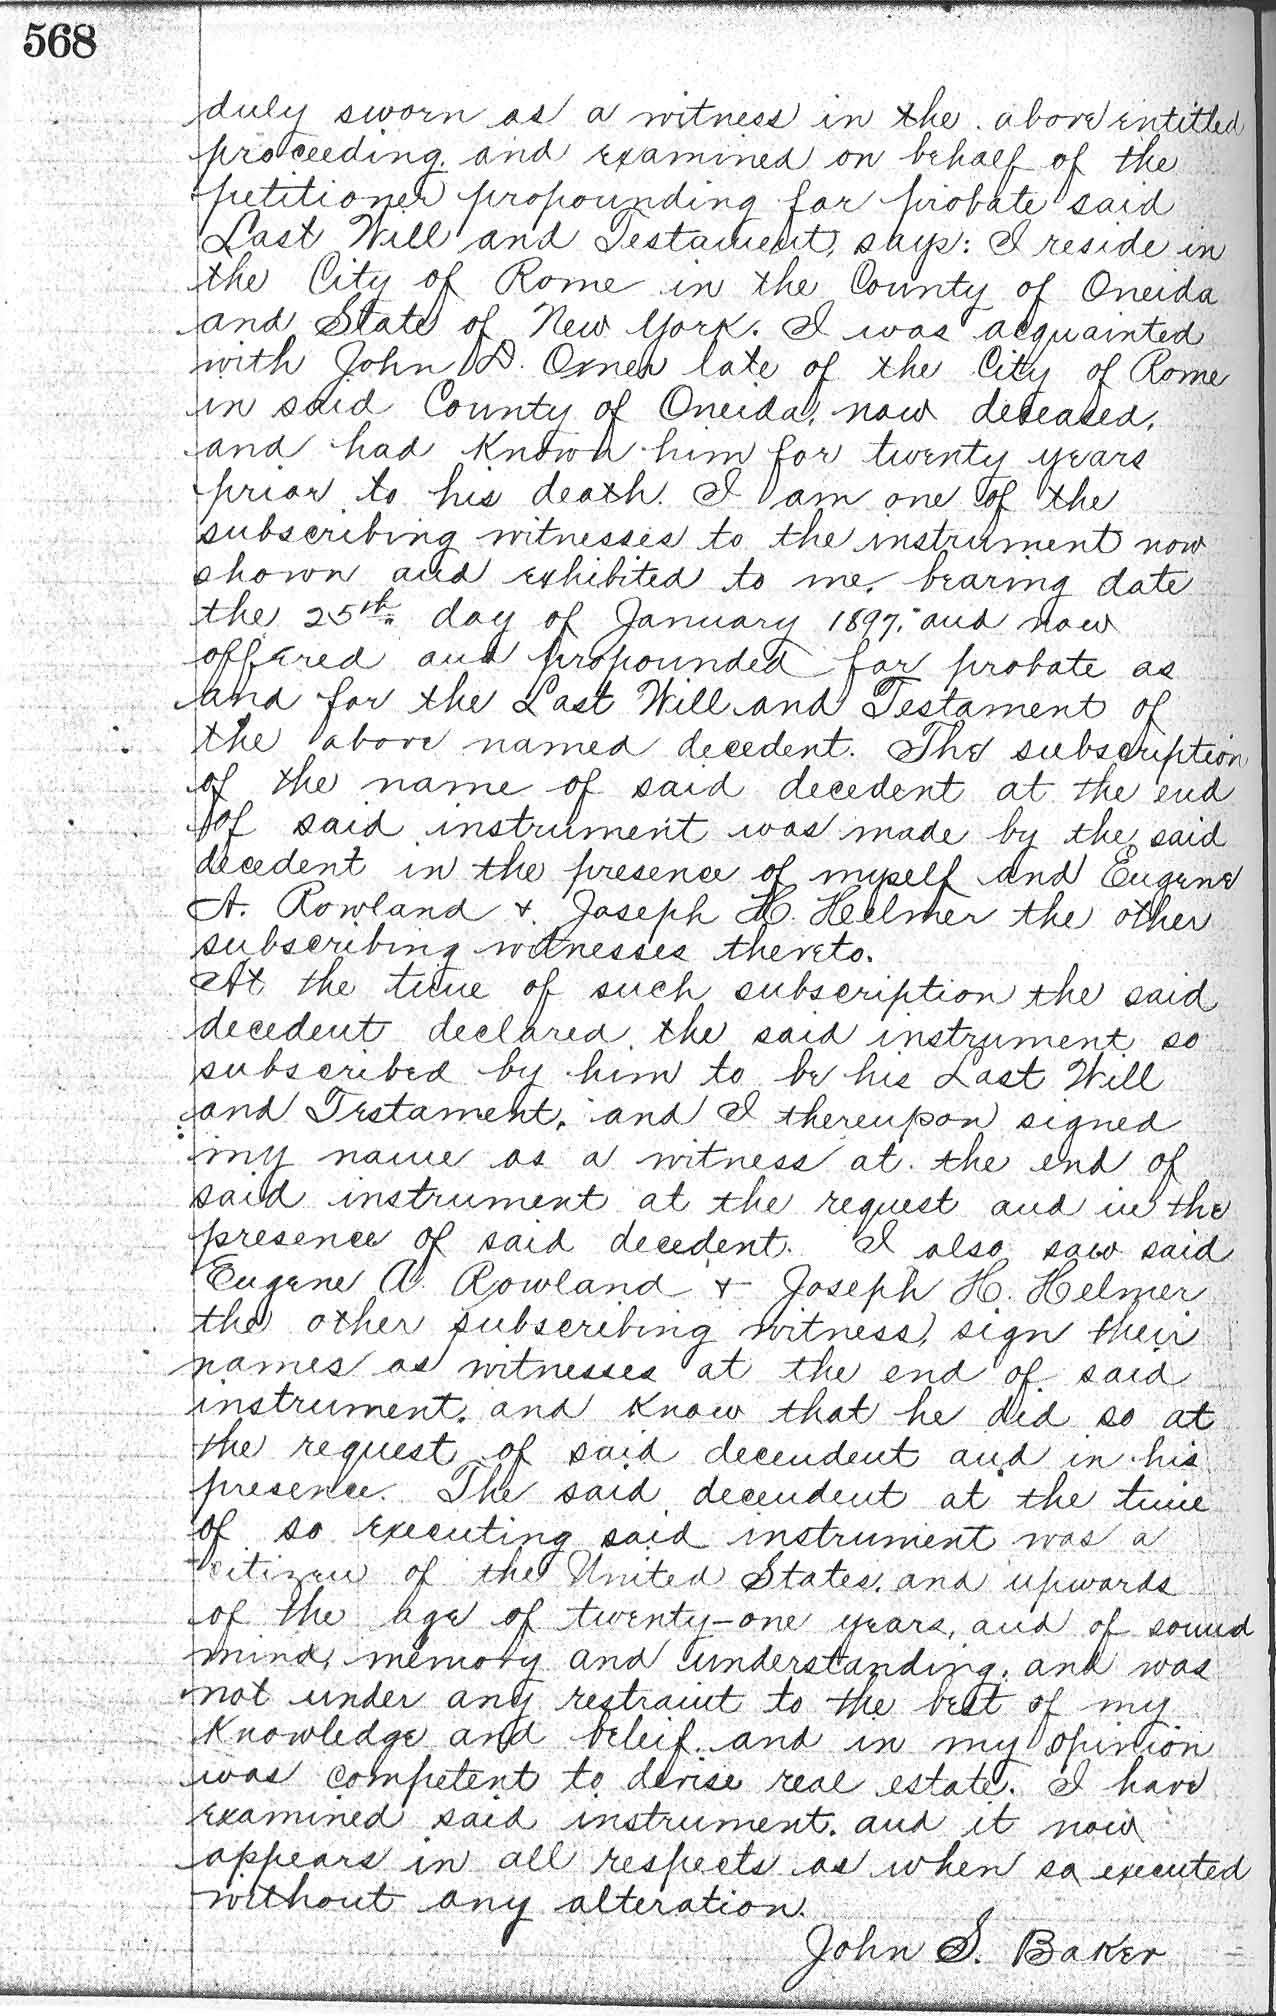 568
duly sworn as a witness in the above entitled
proceeding and examined on behalf of the
petitioner propounding for probate said
Last Will and Testament, says: I reside in
the City of Rome in the County of Oneida
and State of New York. I was acquainted
with John D. Omer late of the City of Rome
in said County of Oneida, now deceased,
and had known him for twenty years
prior to his death. I am one of the
subscribing witnesses to the instrument now
shown and exhibited to me, bearing date
the 25th. day of January 1897, and now
offered and propounded for probate as
and for the Last Will and Testament of
the above named decedent. The subscription
of the name of said decedent at the end
of said instrument was made by the said
decedent in the presence of myself and Eugene
A. Rowland & Joseph H. Helmer the other
subscribing witnesses thereto.
At the time of such subscription the said
decedent declared the said instrument so
subscribed by him to be his Last Will
and Testament, and I thereupon signed
my name as a witness at the end of
said instrument at the request and in the
presence of said decedent. I also saw said
Eugene A. Rowland & Joseph H. Helmer
the other subscribing witness, sign their
names as witnesses at the end of said
instrument, and know that he did so at
the request of said decendent and in his
presence. The said decendent at the time
of so executing said instrument was a
citizen of the United States, and upwards
of the age of twenty-one years, and of sound
mind, memory and understanding, and was
not under any restraint to the best of my
knowledge and beleif. and in my opinion
was competent to devise real estate. I have
examined said instrument. and it now
appears in all respects as when so executed
without any alteration.
John S. Baker